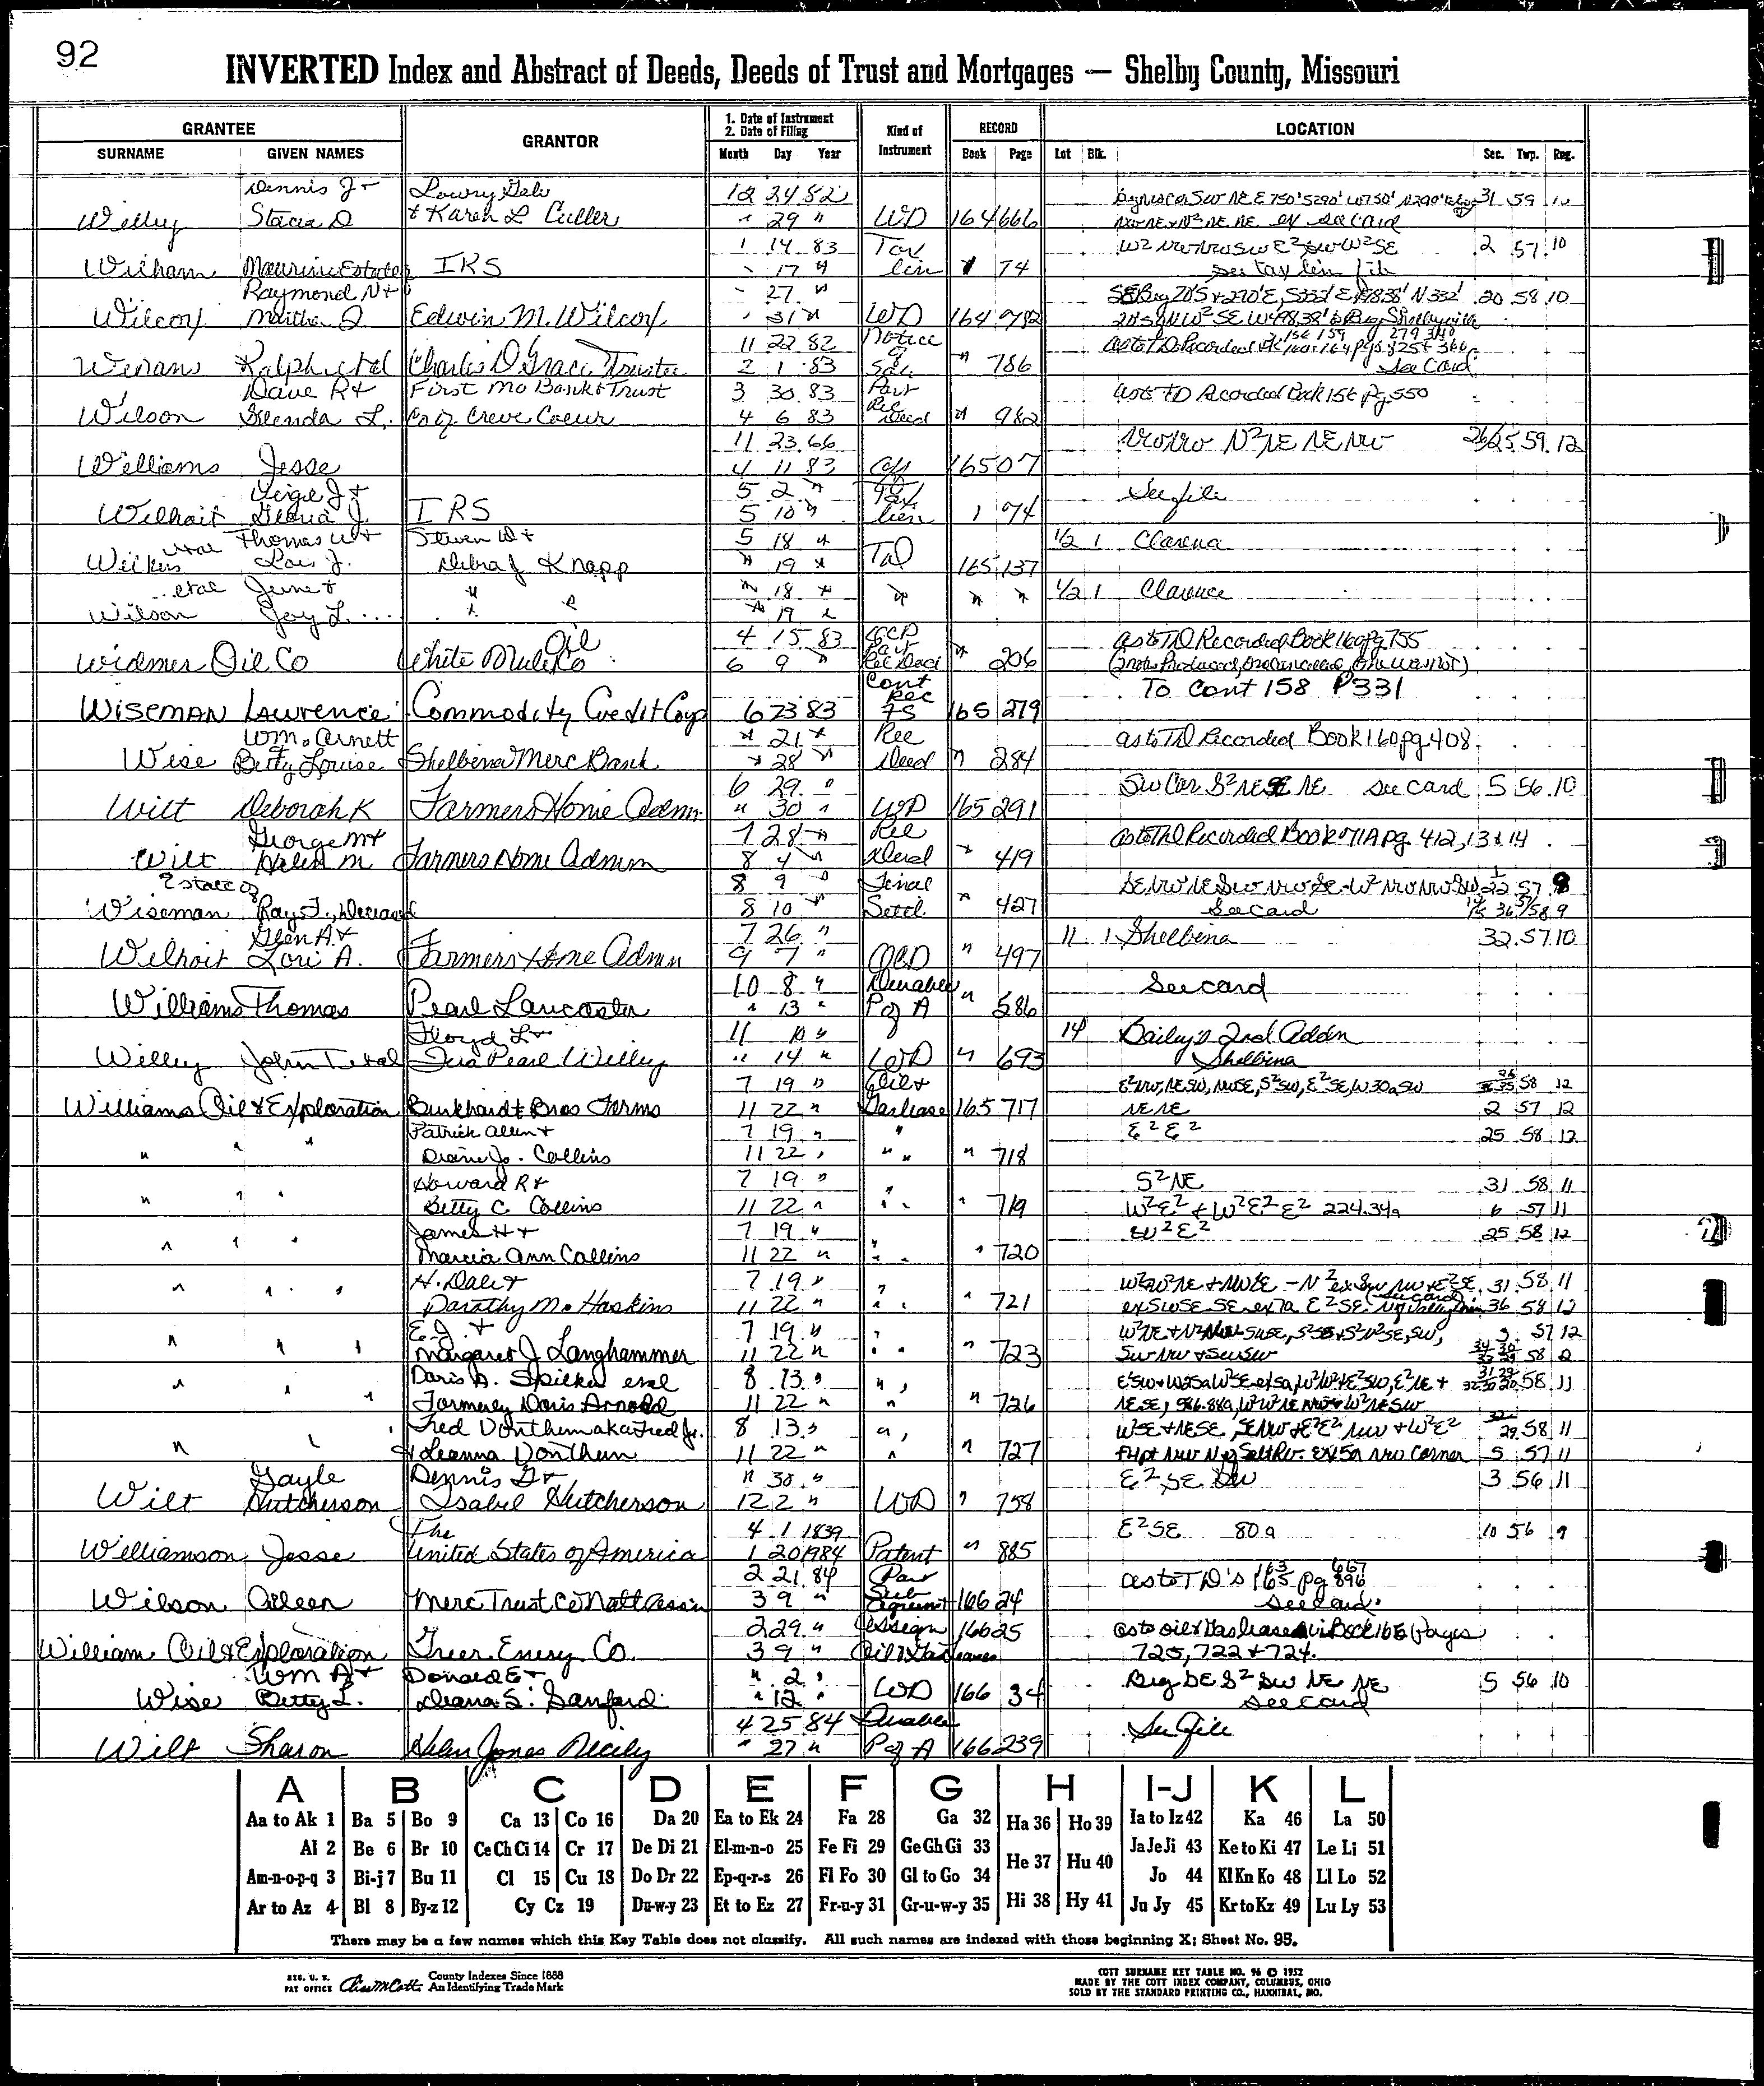 92
INVERTED Index and Abstract of Deeds, Deeds of Trust and Mortgages — Shelby County, Missouri
GRANTEE GRANTOR 1. Date of Instrument 2. Date of Filing Kind of Instrument RECORD LOCATION
SURNAME GIVEN NAMES Month Day Year Book Page Lot Blk. Sec. Twp. Reg.
Dennis J + Lowry Gale 12 24 82 31 59
Willey Stacia D + Karen L Culler " 29 " WD 164 666 see card
1 14 83 Tax W² SW E² SW W² SE 2 57 10
Witham Maurine Estate IRS " 17 " lien 1 74 see tax lien file
Raymond N + " 27 " 20 58 10
Wilcox Martha J Edwin M. Wilcox " 31 " WD 164 782
11 22 82 Notice
Ralph et al Charles D Grace Trustee 2 1 83 Sale " 786 see Card
Dave R + First Mo Bank & Trust 3 30 83 Part as to TD Recorded Book 156 pg 550
Wilson Glenda L. Co of Creve Coeur 4 6 83 Rel Deed " 982
11 23 66 NWNW N²NE NENW 26/25 59 12
Williams Jesse 4 11 83 165 07
Virgil J + 5 2 " Tax See file
Wilhoit Gloria J. IRS 5 10 " lien 1 74
etal Thomas W + Steven W + 5 18 " 1/2 1 Clarence
Lois J. Debra J Knapp " 19 " TD 165 137
etal June + " " " 18 " " " " 1/2 1 Clarence
Wilson Joy L. " " " 19 "
Oil 4 15 83 Part as to TD Recorded Book 160 pg 755
Widmer Oil Co White Mule Co 6 9 " Rel Deed " 206
Cont Rec To Cont 158 P331
Wiseman Lawrence Commodity Credit Corp 6 23 83 FS 165 279
Wm. Arnett " 21 " Rel as to TD Recorded Book 160 pg 408
Wise Betty Louise Shelbina Merc Bank " 28 " Deed " 284
6 29 " SW Cor S² NE SE NE see card 5 56 10
Wilt Deborah K Farmers Home Admn. " 30 " WD 165 291
George M + 7 28 " Rel as to TD Recorded Book 71A pg. 412, 13 & 14
Wilt Helen M Farmers Home Admn 8 4 " Deed " 419
Estate of 8 9 " Final
Wiseman Ray F., Deceased 8 10 " Settl. " 427 See card
Glen A. + 7 26 " 11 1 Shelbina 32 57 10
Wilhoit Lori A. Farmers Home Admn 9 7 " QCD " 497
10 8 " Durable See card
Williams Thomas Pearl Lancaster " 13 " P of A " 586
Floyd L + 11 10 " 14 Bailey's 2nd Addn
Willey John T etal Iva Pearl Willey " 14 " WD " 693 Shelbina
7 19 " Oil + E²NW, NESW, NWSE, S²SW, E²SE, W 30a SW 58 12
Williams Oil & Exploration Burkhardt Bros Farms 11 22 " Gas lease 165 717 NENE 2 57 12
Patrick Allen + 7 19 " " E²E² 25 58 12
" " " Diane Jo. Collins 11 22 " " " " 718
Howard R + 7 19 " " S²NE 31 58 11
" " " Betty C Collins 11 22 " " " " 719 W²E² + W²E²E² 224.34a 6 57 11
James H + 7 19 " W²E² 25 58 12
" " " Marcia Ann Collins 11 22 " " " " 720
H. Dale + 7 19 " " 31 58 11
" " " Dorothy M. Haskins 11 22 " " " " 721 36 58 12
E. J. + 7 19 " " 57 12
" " " Margaret J Langhammer 11 22 " " " " 723 SWNW + SWSW
Doris D. etal 8 13 " " " 58 11
" " " Formerly Doris Arnold 11 22 " " " 726
Fred Vonthun aka Fred Jr. 8 13 " " " 29 58 11
" " & Leanna Vonthun 11 22 " " " 727 5 57 11
Gayle Dennis G + " 30 " E² SE SW 3 56 11
Wilt Hutcherson Isabel Hutcherson 12 2 " WD " 758
The 4 1 1839 E²SE 80a 10 56 9
Williamson Jesse United States of America 1 20 1984 Patent " 885
2 21 84 Part as to TD's
Wilson Aileen Merc Trust Co Natl Assn 3 9 " Sub Agreement 166 24 see card
2 29 " Assign 166 25 as to oil & Gas leases in Book 165 Pages
William Oil & Exploration Greer Energy Co. 3 9 " Oil & Gas leases 725, 722 + 724.
Wm A + Donald E + " 2 " Beg SE S² SW NE NE 5 56 10
Wise Betty L. Diana S. Sanford " 12 " WD 166 34 see card
4 25 84 Durable See File
Wilt Sharon Helen Jones " 27 " P of A 166 239
A B C D E F G H I-J K L
Aa to Ak 1 Ba 5 Bo 9 Ca 13 Co 16 Da 20 Ea to Ek 24 Fa 28 Ga 32 Ha 36 Ho 39 Ia to Iz 42 Ka 46 La 50
Al 2 Be 6 Br 10 Ce Ch Ci 14 Cr 17 De Di 21 El-m-n-o 25 Fe Fi 29 Ge Gh Gi 33 He 37 Hu 40 Ja Je Ji 43 Ke to Ki 47 Le Li 51
Am-n-o-p-q 3 Bi-j 7 Bu 11 Cl 15 Cu 18 Do Dr 22 Ep-q-r-s 26 Fl Fo 30 Gl to Go 34 Hi 38 Hy 41 Jo 44 Kl Kn Ko 48 Ll Lo 52
Ar to Az 4 Bl 8 By-z 12 Cy Cz 19 Du-w-y 23 Et to Ez 27 Fr-u-y 31 Gr-u-w-y 35 Ju Jy 45 Kr to Kz 49 Lu Ly 53
There may be a few names which this Key Table does not classify. All such names are indexed with those beginning X; Sheet No. 95.
REG. U. S. PAT OFFICE County Indexes Since 1888 An Identifying Trade Mark
COTT SURNAME KEY TABLE NO. 96 © 1952
MADE BY THE COTT INDEX COMPANY, COLUMBUS, OHIO
SOLD BY THE STANDARD PRINTING CO., HANNIBAL, MO.